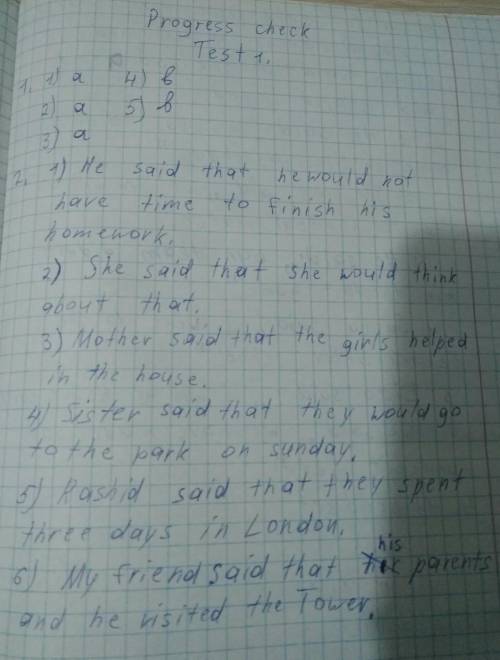 Progress check
Test 1.
1. 1) a 4) в
2) a 5) в
3) a
2. 1) He said that he would not
have time to finish his
homework.
2) She said that she would think
about that.
3) Mother said that the girls helped
in the house.
4) Sister said that they would go
to the park on sunday.
5) Rashid said that they spent
three days in London.
6) My friend said that his parents
and he visited the Tower.